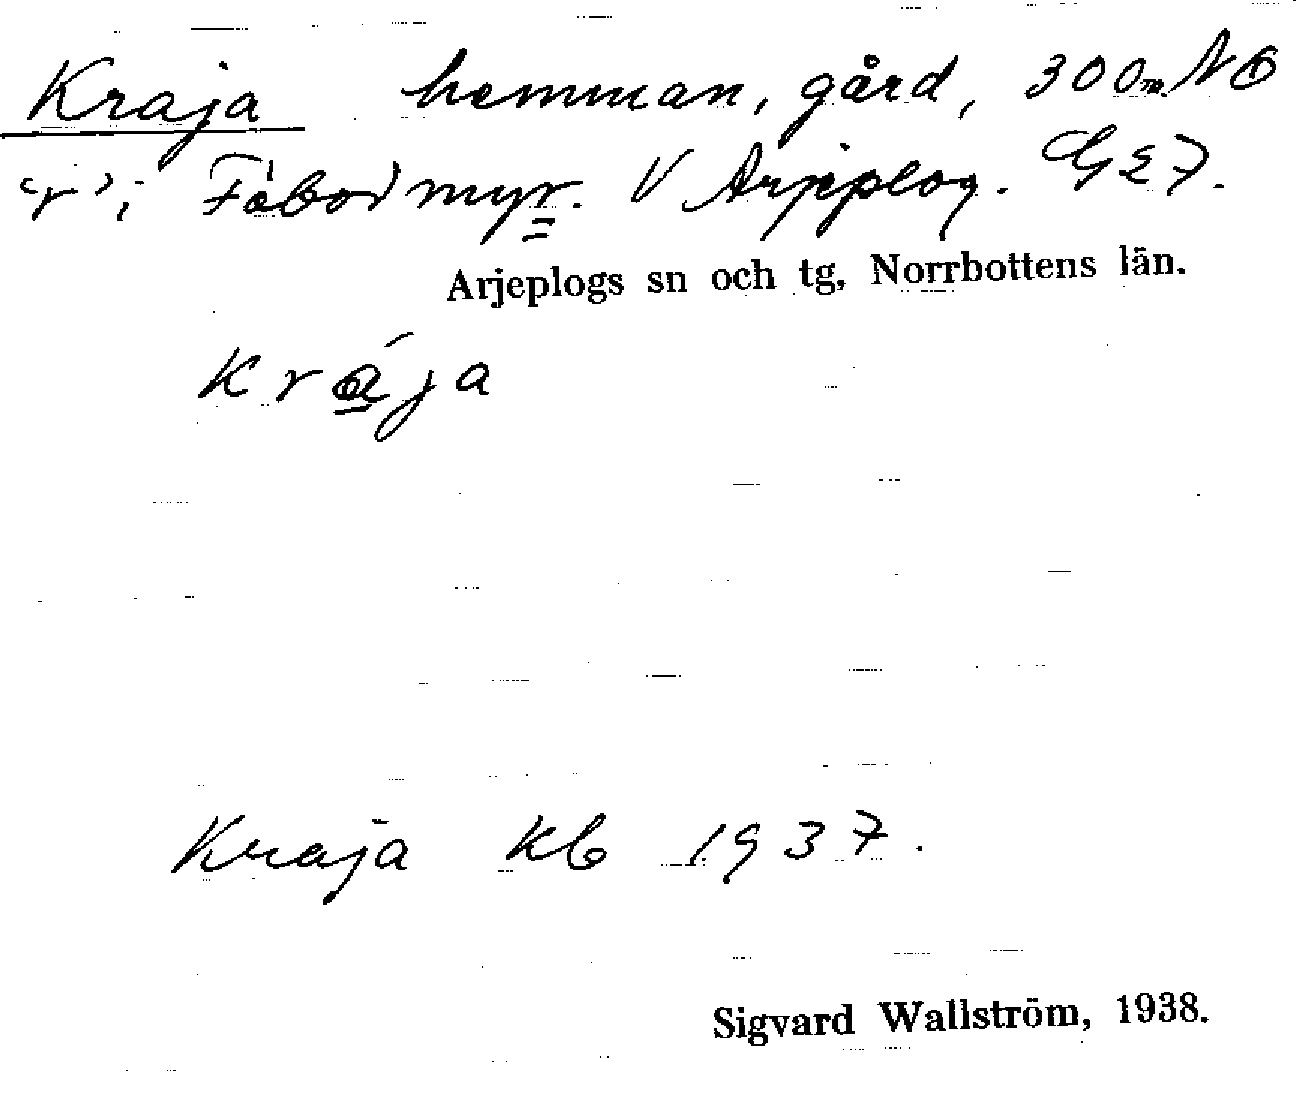 Kraja hemman, gård, 300m NO
"r" i Fäbodmyr. V Arjeplog. G27.
Arjeplogs sn och tg, Norrbottens län.
krája
Kraja kb 1937.
Sigvard Wallström, 1938.